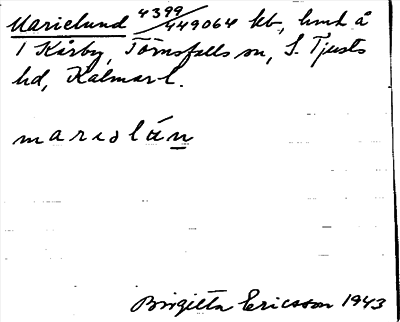 Marielund 4399/449064 kb, hmt å
1 Kårby, Törnsfalls sn, S. Tjusts
hd, Kalmar l.
marıəlún
Birgitta Ericsson 1943